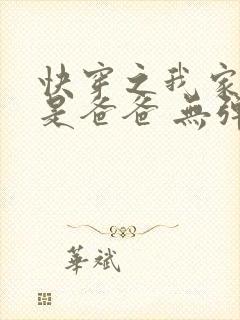 快穿之我家
是爸爸 無彈
華斌